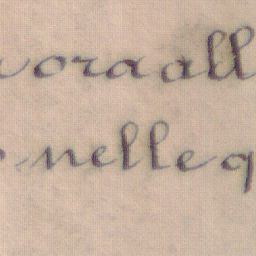 vora all
nelle q